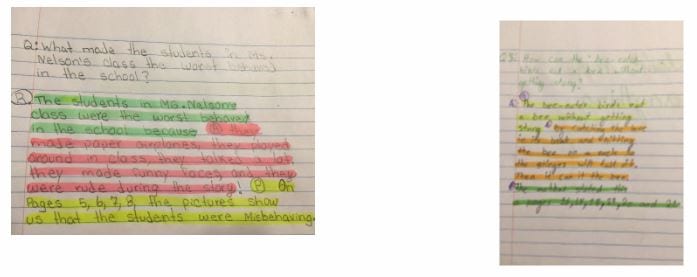 Q: What made the students in Ms.
Nelson's class the worst behaved
in the school?
R The students in Ms. Nalsons
class were the worst behaved
in the school because A they
made paper airplanes, they played
around in class, they talked a lot,
they made funny faces, and they
were rude during the story! P On
Pages 5, 6, 7, 8, the pictures show
us that the students were Misbehaving.
How can the bee-eater
birds eat a bee without
getting stung?
The bee-eater birds eat
a bee without getting
stung by catching the bee
in its beak and
the bee on a
the stinger will fall off.
Then it eat it the bee.
the author stated this